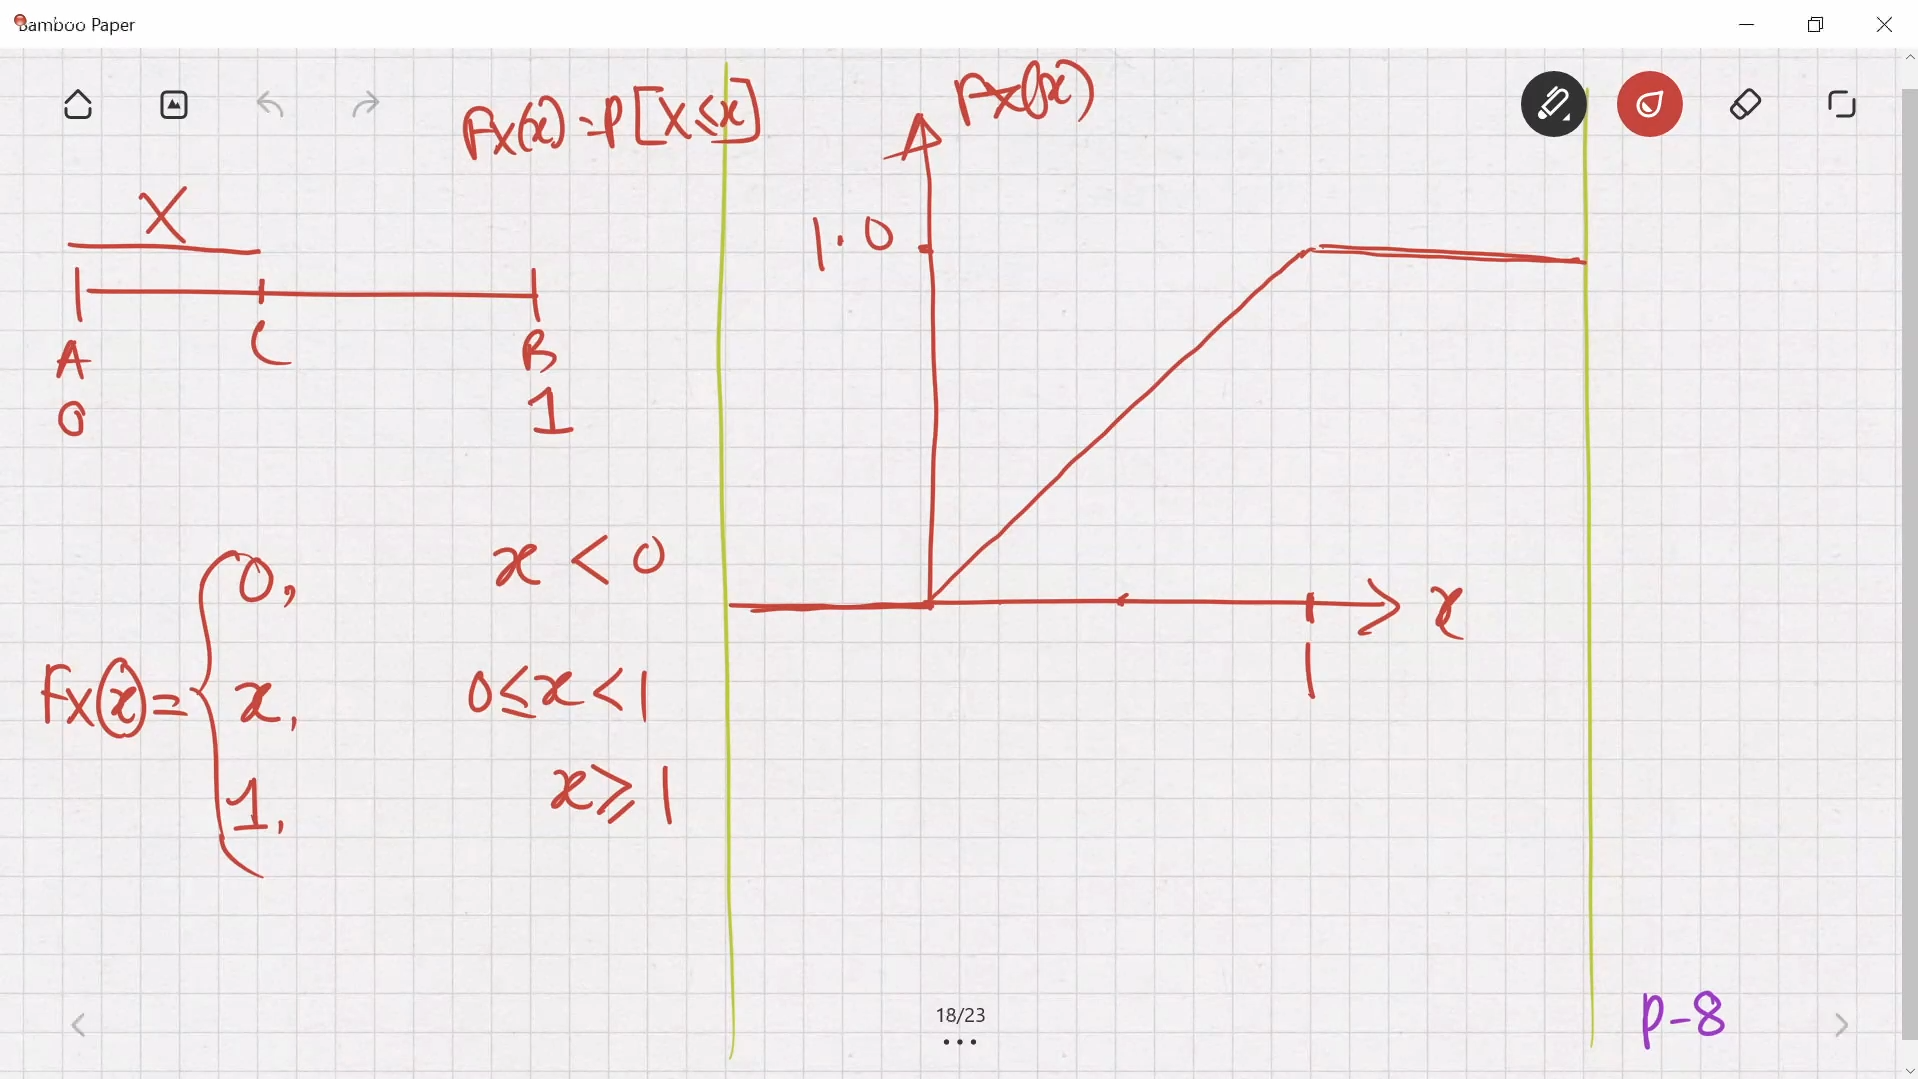 Bamboo Paper
Fx(x) = P[X≤x]
X
A C B
0 1
Fx(x) = { 0, x < 0
x, 0 ≤ x < 1
1, x ≥ 1
Fx(x)
1.0
x
1
18/23
P-8